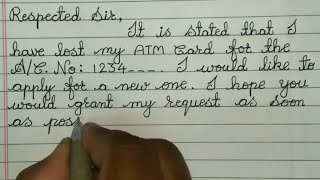 Respected Sir,
It is stated that I
have lost my ATM Card for the
A/C. No: 1234----. I would like to
apply for a new one. I hope you
would grant my request as soon
as pos